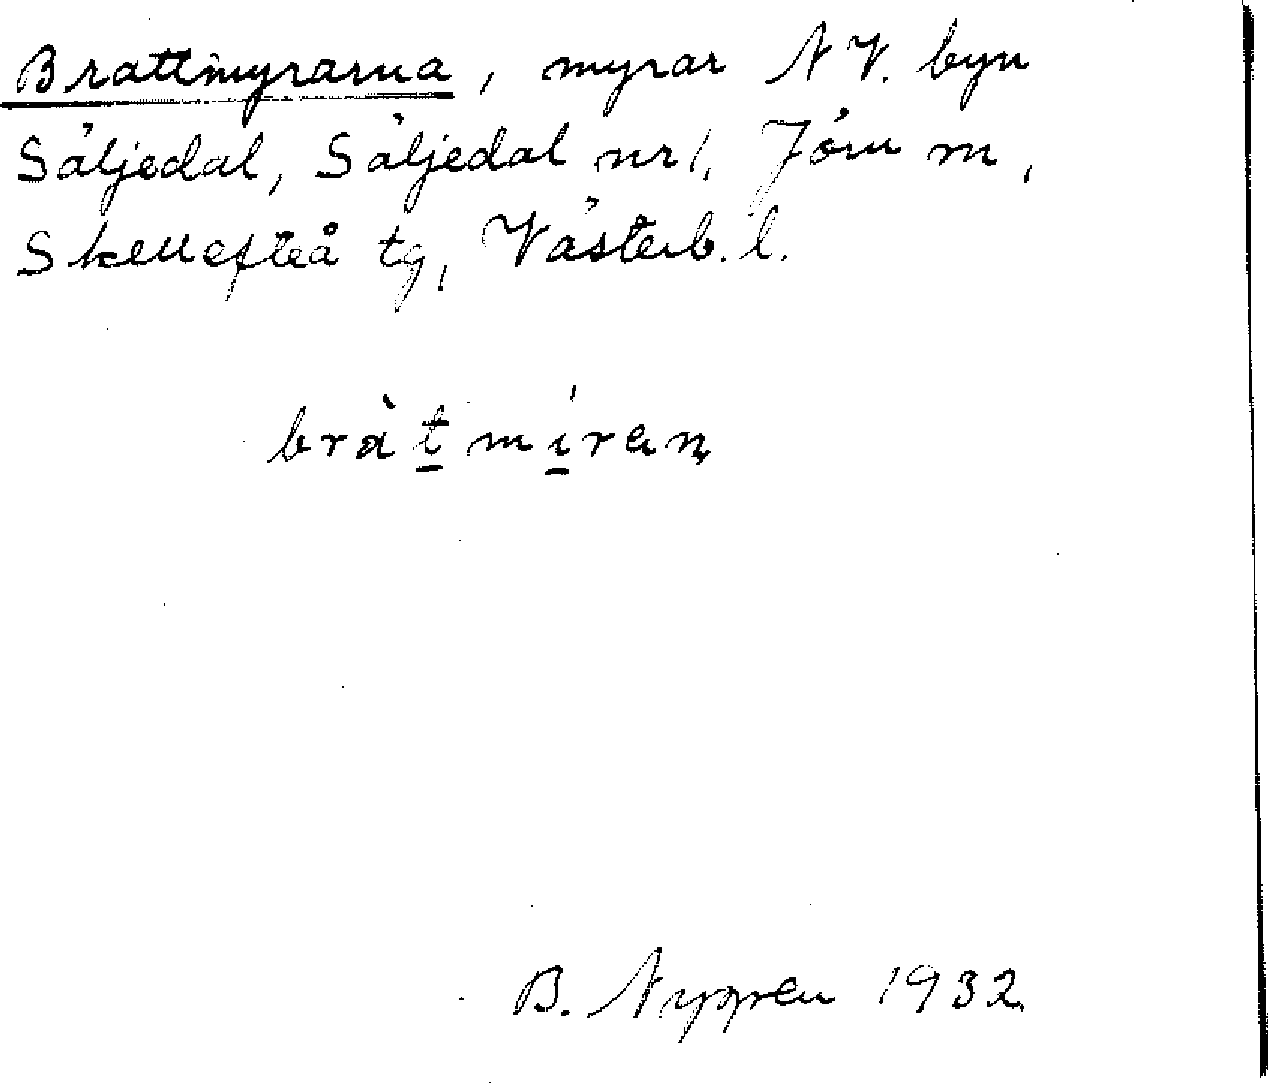 Brattmyrarna, myrar NV. byn
Säljedal, Säljedal nr 1, Jörn m,
Skellefteå tg, Västerb. l.
bràt̲mí̲ren
B. Nygren 1932